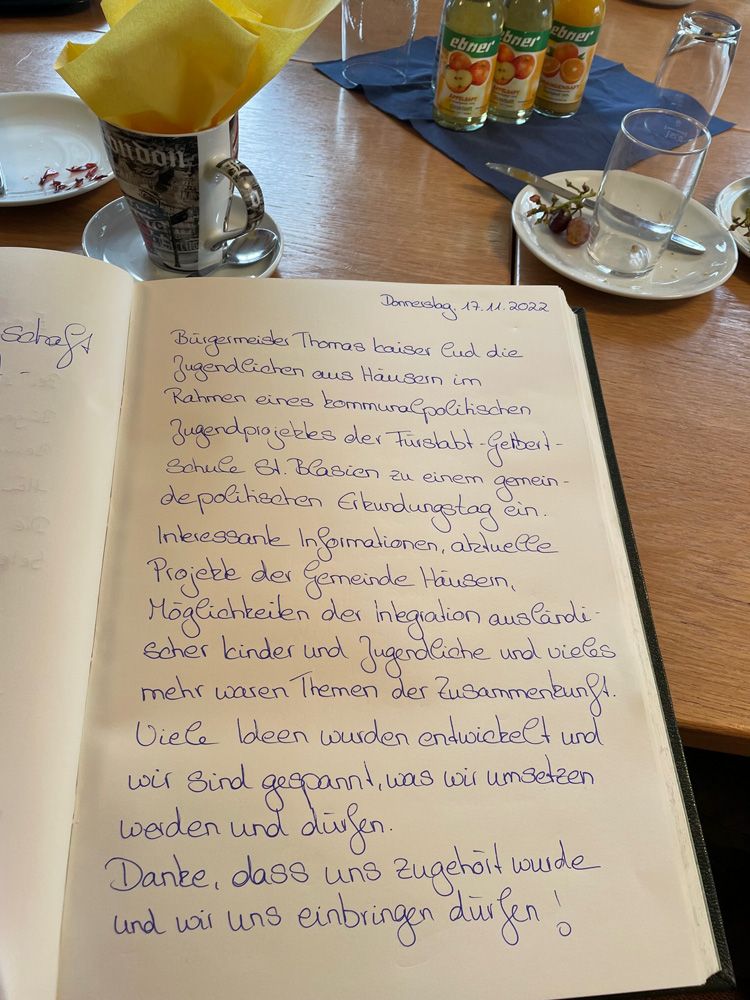 ebner
ebner
ebner
APFELSAFT
London
schaft
Donnerstag, 17.11.2022
Bürgermeister Thomas Kaiser lud die
Jugendlichen aus Häusern im
Rahmen eines kommunalpolitischen
Jugendprojektes der Fürstabt-Gerbert-
Schule St. Blasien zu einem gemein-
depolitischen Erkundungstag ein.
Interessante Informationen, aktuelle
Projekte der Gemeinde Häusern,
Möglichkeiten der Integration ausländi-
scher Kinder und Jugendliche und vieles
mehr waren Themen der Zusammenkunft.
Viele Ideen wurden entwickelt und
wir sind gespannt, was wir umsetzen
werden und dürfen.
Danke, dass uns zugehört wurde
und wir uns einbringen dürfen!